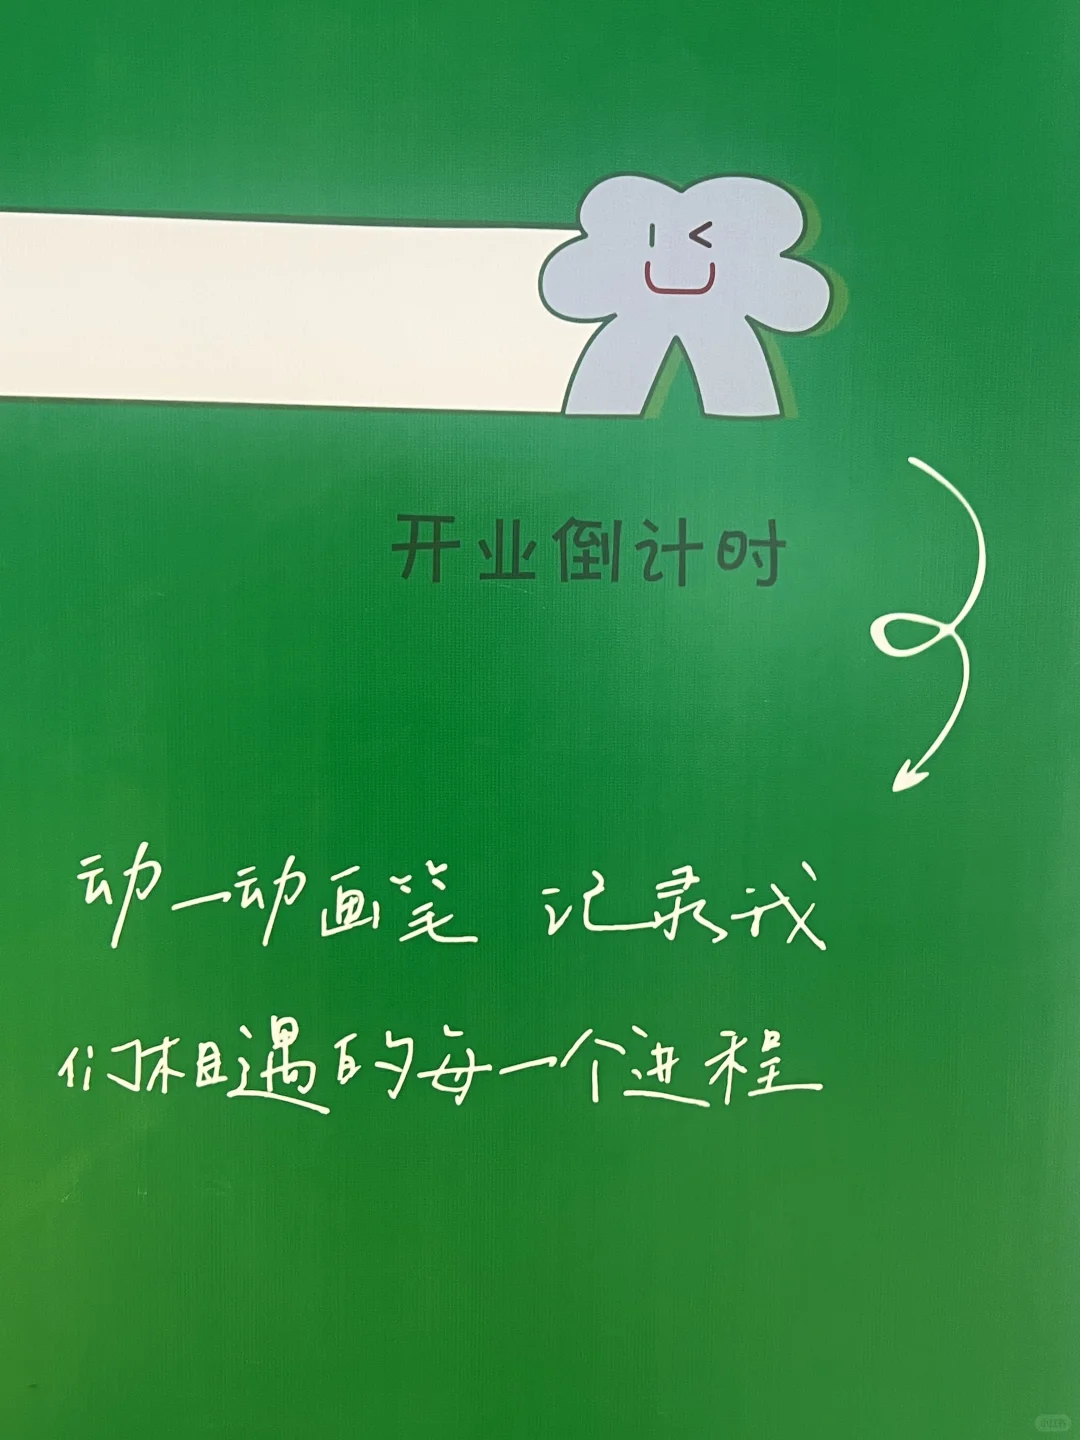 开业倒计时
动一动画笔 记录我
们相遇的每一个进程